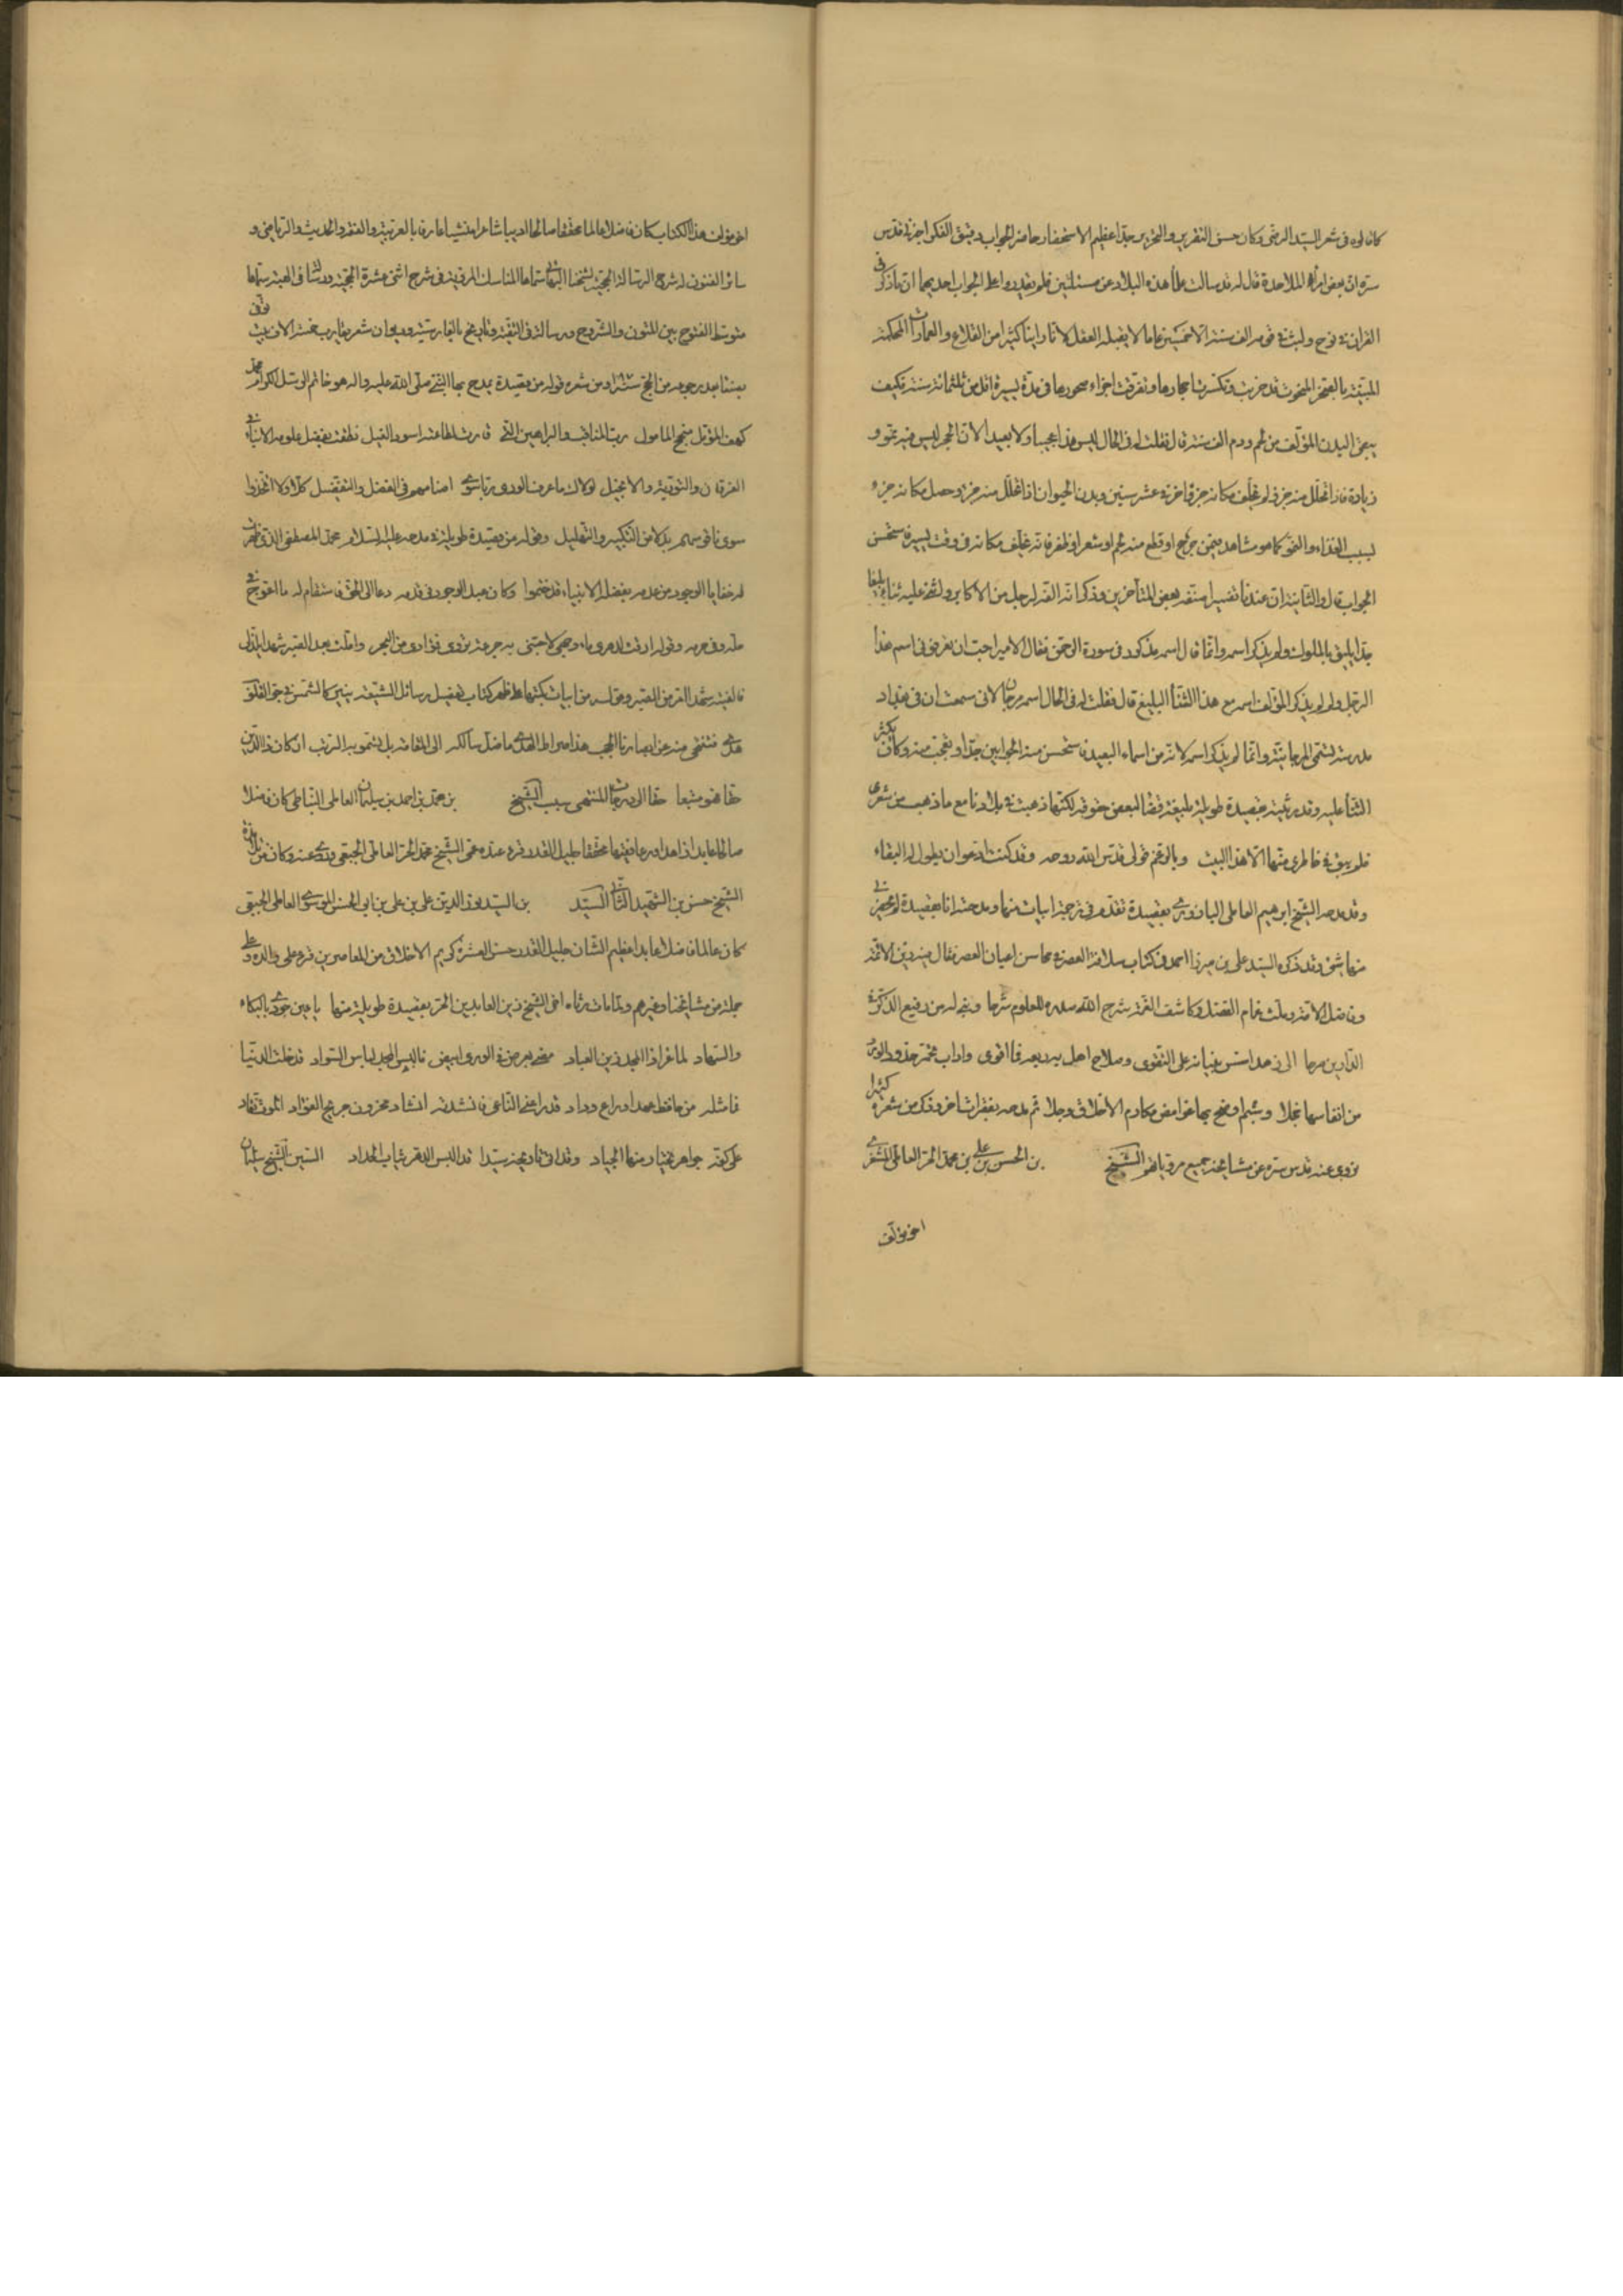 كانه لوه فى شعر السيد الرضى وكان حسن التقرير والتحرير جدا عظيم الاستحضار حاضر الجواب دقيق الفكر اخبرنى قدس
سره ان بعض امراء الملاحدة قال له قد سالت علماء هذه البلاد عن مسئلتين فلم يقدروا على الجواب احديهما ان ما ذكر فى
القران فى نوح ولبث فى قومه الف سنة الا خمسين عاما لا يقبله العقل لانا راينا كثيرا من القلاع والعمارات المحكمة
المبنية بالصخر المنحوت قد خربت وتكسرت احجارها وتفرقت اجزاء صخورها فى مدة يسيرة اقل من ثلثمائة سنة فكيف
يبقى البدن المؤلف من لحم ودم الف سنة قال فقلت له فى الحال ليس هذا عجيبا ولا بعيدا لان الحجر ليس فيه نمو و
زيادة فاذا تحلل منه جزء لم يخلف مكانه جزء اخر فى عشر سنين وبدن الحيوان اذا تحلل منه جزء حصل مكانه جزء
بسبب الغذاء والنمو كما هو مشاهد فيمن جرح او قطع منه لحم او شعر او ظفر فانه يخلف مكانه فى وقت يسير فاستحسن
الجواب قال والثانية ان عندنا تفسيرا صنفه بعض المتأخرين وذكر انه الفه لرجل من الاكابر واثنى عليه ثناء بليغا
جدا يليق بالملوك ولم يذكر اسمه وانما قال اسمه مذكور فى سورة الرحمن فقال الامير احب ان تعرفنى اسم هذا
الرجل ولم لم يذكر المؤلف اسمه مع هذا الثناء البليغ قال فقلت له فى الحال اسمه مرجان لانى سمعت ان فى بغداد
مدرسة تسمى المرجانية وانما لم يذكر اسمه لانه من اسماء العبيد فاستحسن منه الجوابين جدا وتعجب منه وكان يكثر
الثناء عليه وقد رثيته بقصيدة طويلة بليغة قضاء لبعض حقوقه لكنها ذهبت فى بلادنا مع ما ذهب من شعرى
فلم يبق فى خاطرى منها الا هذا البيت وبالرغم قولى قدس الله روحه وقد كنت ادعو ان يطول له البقاء
وقد مدحه الشيخ ابرهيم العاملى البازورى بقصيدة تقدم فى ترجمته ابيات منها ومدحته انا بقصيدة لم يحضرنى
منها شئ وقد ذكره السيد على بن ميرزا احمد فى كتاب سلافة العصر فى محاسن اعيان العصر فقال فيه زين الائمة
وفاضل الامة وملث غمام الفضل وكاشف الغمة شرح الله صدره للعلوم شرحا وبنى له من رفيع الذكر فى
الدارين صرحا الى زهد اسس بنيانه على التقوى وصلاح اهل به ربعه فما اقوى واداب تحمر خدود الورد
من انفاسها خجلا وشيم اوضح بها غوامض مكارم الاخلاق وجلا ثم مدحه بفقرات اخر وذكر من شعره كثيرا
نروى عنه قدس سره عن مشايخه جميع مروياتهم الشيخ بن الحسن بن على بن محمد الحر العاملى المشغرى
اخو مؤلف
اخو مؤلف هذا الكتاب كان فاضلا عالما محققا صالحا اديبا شاعرا منشيا عارفا بالعربية والفقه والحديث والرياضى و
سائر الفنون له شرح الرسالة الحجية لشيخنا البهائى سماها المناسك المروية فى شرح الاثنى عشرية الحجية ورسالة فى الهيئة سماها
متوسط الفتوح بين المتون والشروح ورسالة فى التقية وتاريخ بالفارسية وديوان شعر يقارب خمسة الاف بيت توفى
بصنعا بعد رجوعه من الحج سنة ومن شعره قوله من قصيدة يمدح بها النبى صلى الله عليه واله هو خاتم الرسل الكرام محمد
كهف المؤمل منجح المامول رب المناقب والبراهين التى فارت لطاعته اسود الغيل نطقت بفضل علومه الانباء فى
الفرقان والتورية والانجيل لولاك ما عرف الورى ربا سوى اصنامهم فى الفضل والتفضيل كلا ولا اتخذوا
سوى ناقوسهم بدلا من التكبير والتهليل وقوله من قصيدة طويلة فى مدحه عليه السلام محمد المصطفى الذى ظهرت
له خفايا الوجود من عدمه بفضله الانبياء قد ختموا وكان مبدا الوجود فى قدمه دعا الى الحق فاستقام له ما اعوج فى
حله وفى حرمه وقوله اردت لدهرى ماء وجهى لاجتنى به جرعة تروى فؤادى من البحر واملت بعد الصبر شهدا يلذ لى
فالفيت شهد القرض الصبر وقوله من ابيات كتبها على ظهر كتاب تفصيل وسائل الشيعة يبين كالشمس فى جو القلوب
هدى فتنتفى منه عن ابصارنا الحجب هذا صراط الهدى ما ضل سالكه الى المقام بل تسمو به الرتب ان كان ذا الدين
حقا فهو متبعا حقا الى درجات المنتهى سبب الشيخ بن محمد بن احمد بن سليمان العاملى النباطى كان فاضلا
صالحا عابدا زاهدا ورعا فقيها محققا جليل القدر قرء عنده عمى الشيخ محمد الحر العاملى الجبعى وروى عنه وكان من تلامذة
الشيخ حسن بن الشهيد الثانى السيد بن السيد نور الدين على بن على بن ابى الحسن الموسوى العاملى الجبعى
كان عالما فاضلا عابدا عظيم الشان جليل القدر حسن العشرة كريم الاخلاق من المعاصرين قرء على والده وعلى
جملة من مشايخنا وغيرهم ولما مات رثاه اخى الشيخ زين العابدين الحر بقصيدة طويلة منها يا عين جودى بالبكاء
والسهاد لما عرا ذا المجد زين العباد مضى بعرض فى الورى ابيض فالبس المجد لباس السواد قد خلت الدنيا
فما مثله من حافظ عهدا وراع وداد قد راعنى الناعى فانشدته انشاد محزون جريح الفؤاد الموت نقاد
على كفه جواهر يختار منها الجياد وقد اتى تاريخه سيدا قد البس الدهر ثياب الحداد الستين الشيخ سليمان